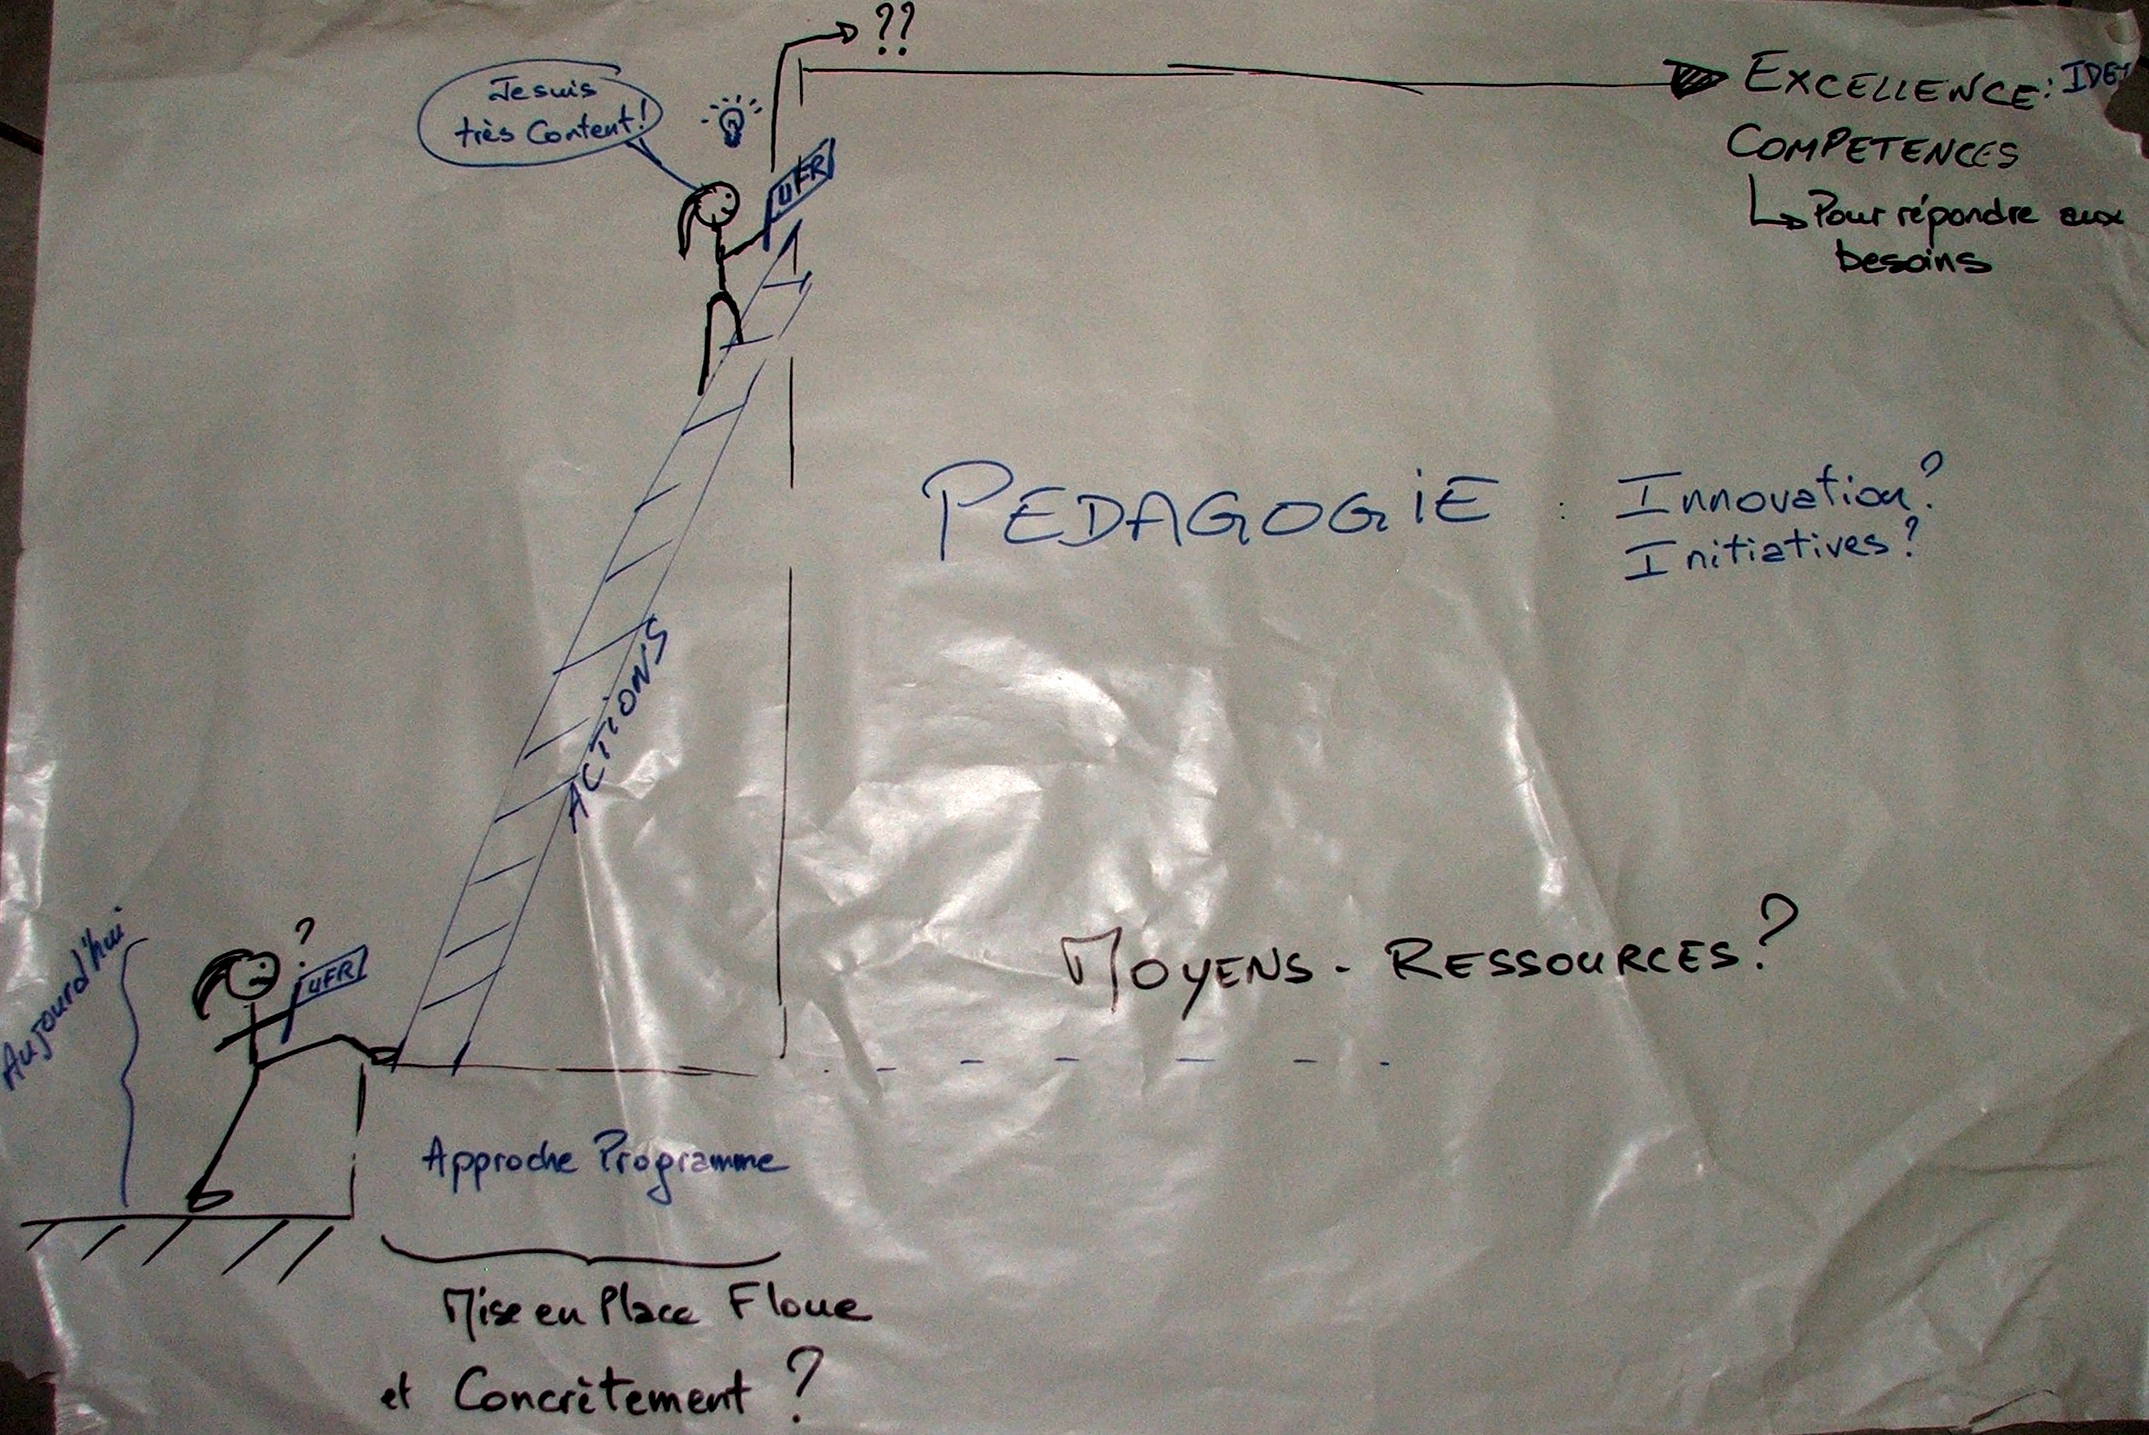 ??
Je suis
très Content!
UFR
EXCELLENCE:
COMPETENCES
↳ Pour répondre aux
besoins
PEDAGOGIE : Innovation?
Initiatives?
ACTIONS
MOYENS - RESSOURCES?
Aujourd'hui
?
UFR
Approche Programme
Mise en Place Floue
et Concrètement ?